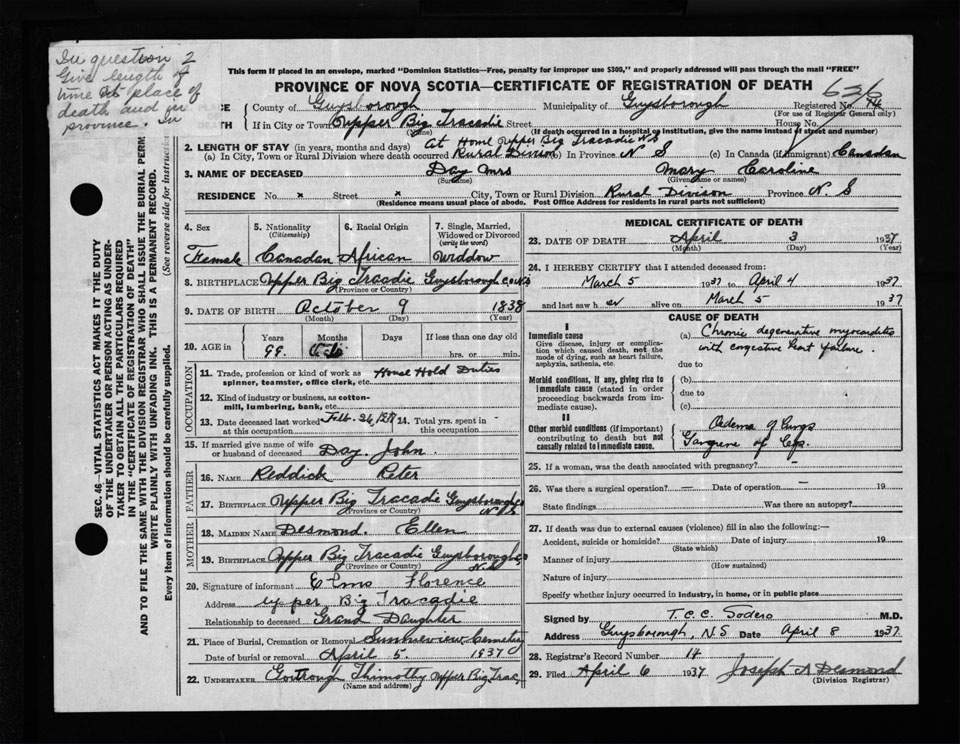 In question 2
Give length of
time at place of
death and in
province. In
This form if placed in an envelope, marked "Dominion Statistics—Free, penalty for improper use $300," and properly addressed will pass through the mail "FREE"
PROVINCE OF NOVA SCOTIA—CERTIFICATE OF REGISTRATION OF DEATH
636
County of Guysborough Municipality of Guysborough Registered No. 14
(For use of Registrar General only)
If in City or Town Upper Big Tracadie Street House No.
(Name) (If death occurred in a hospital or institution, give the name instead of street and number)
2. LENGTH OF STAY (in years, months and days) At Home Upper Big Tracadie N S
(a) In City, Town or Rural Division where death occurred Rural Division (b) In Province N S (c) In Canada (if immigrant) Canadian
3. NAME OF DECEASED Day Mrs Mary Caroline
(Surname) (Given name or names)
RESIDENCE No. x Street x City, Town or Rural Division Rural Divison Province N. S
(Residence means usual place of abode. Post Office Address for residents in rural parts not sufficient)
4. Sex 5. Nationality (Citizenship) 6. Racial Origin 7. Single, Married, Widowed or Divorced (write the word)
Female Canadian African Widdow
8. BIRTHPLACE Upper Big Tracadie Guysborough Co N S
(Province or Country)
9. DATE OF BIRTH October 9 1838
(Month) (Day) (Year)
10. AGE in Years Months Days If less than one day old
99. hrs. or min.
OCCUPATION
11. Trade, profession or kind of work as spinner, teamster, office clerk, etc. House Hold Duties
12. Kind of industry or business, as cotton-mill, lumbering, bank, etc.
13. Date deceased last worked at this occupation Feb. 26 14. Total yrs. spent in this occupation
15. If married give name of wife or husband of deceased Day. John.
FATHER
16. NAME Reddick Peter
17. BIRTHPLACE Upper Big Tracadie Guysborough Co N S
(Province or Country)
MOTHER
18. MAIDEN NAME Desmond. Ellen
19. BIRTHPLACE Upper Big Tracadie Guysborough Co N. S
(Province or Country)
20. Signature of informant Elms Florence
Address upper Big Tracadie
Relationship to deceased Grand Daughter
21. Place of Burial, Cremation or Removal Sunnieview Cemetery
Date of burial or removal April 5. 1937
22. UNDERTAKER Thimothy Upper Big Trac.
(Name and address)
MEDICAL CERTIFICATE OF DEATH
23. DATE OF DEATH April 3 1937
(Month) (Day) (Year)
24. I HEREBY CERTIFY that I attended deceased from
March 5 1937 to April 4 1937
and last saw her alive on March 5 1937
CAUSE OF DEATH
I
Immediate cause
Give disease, injury or complication which caused death, not the mode of dying, such as heart failure, asphyxia, asthenia, etc.
(a) Chronic degenerative myocarditis
with congestive heart failure.
due to
Morbid conditions, if any, giving rise to immediate cause (stated in order proceeding backwards from immediate cause).
(b)
due to
(c)
II
Other morbid conditions (if important) contributing to death but not causally related to immediate cause.
Oedema of Lungs
Gangrene of Legs.
25. If a woman, was the death associated with pregnancy? –
26. Was there a surgical operation? — Date of operation — 19
State findings Was there an autopsy?
27. If death was due to external causes (violence) fill in also the following:—
Accident, suicide or homicide? Date of injury 19
(State which)
Manner of injury
(How sustained)
Nature of injury
Specify whether injury occurred in industry, in home, or in public place
Signed by T. C. C. Sodero M.D.
Address Guysborough, N.S. Date April 8 1937.
28. Registrar's Record Number 14
29. Filed April 6 1937 Joseph A Desmond
(Division Registrar)
SEC. 46—VITAL STATISTICS ACT MAKES IT THE DUTY
OF THE UNDERTAKER OR PERSON ACTING AS UNDER-
TAKER TO OBTAIN ALL THE PARTICULARS REQUIRED
IN THE "CERTIFICATE OF REGISTRATION OF DEATH"
AND TO FILE THE SAME WITH THE DIVISION REGISTRAR WHO SHALL ISSUE THE BURIAL PERM
WRITE PLAINLY WITH UNFADING INK. THIS IS A PERMANENT RECORD.
Every item of information should be carefully supplied. (See reverse side for instructio